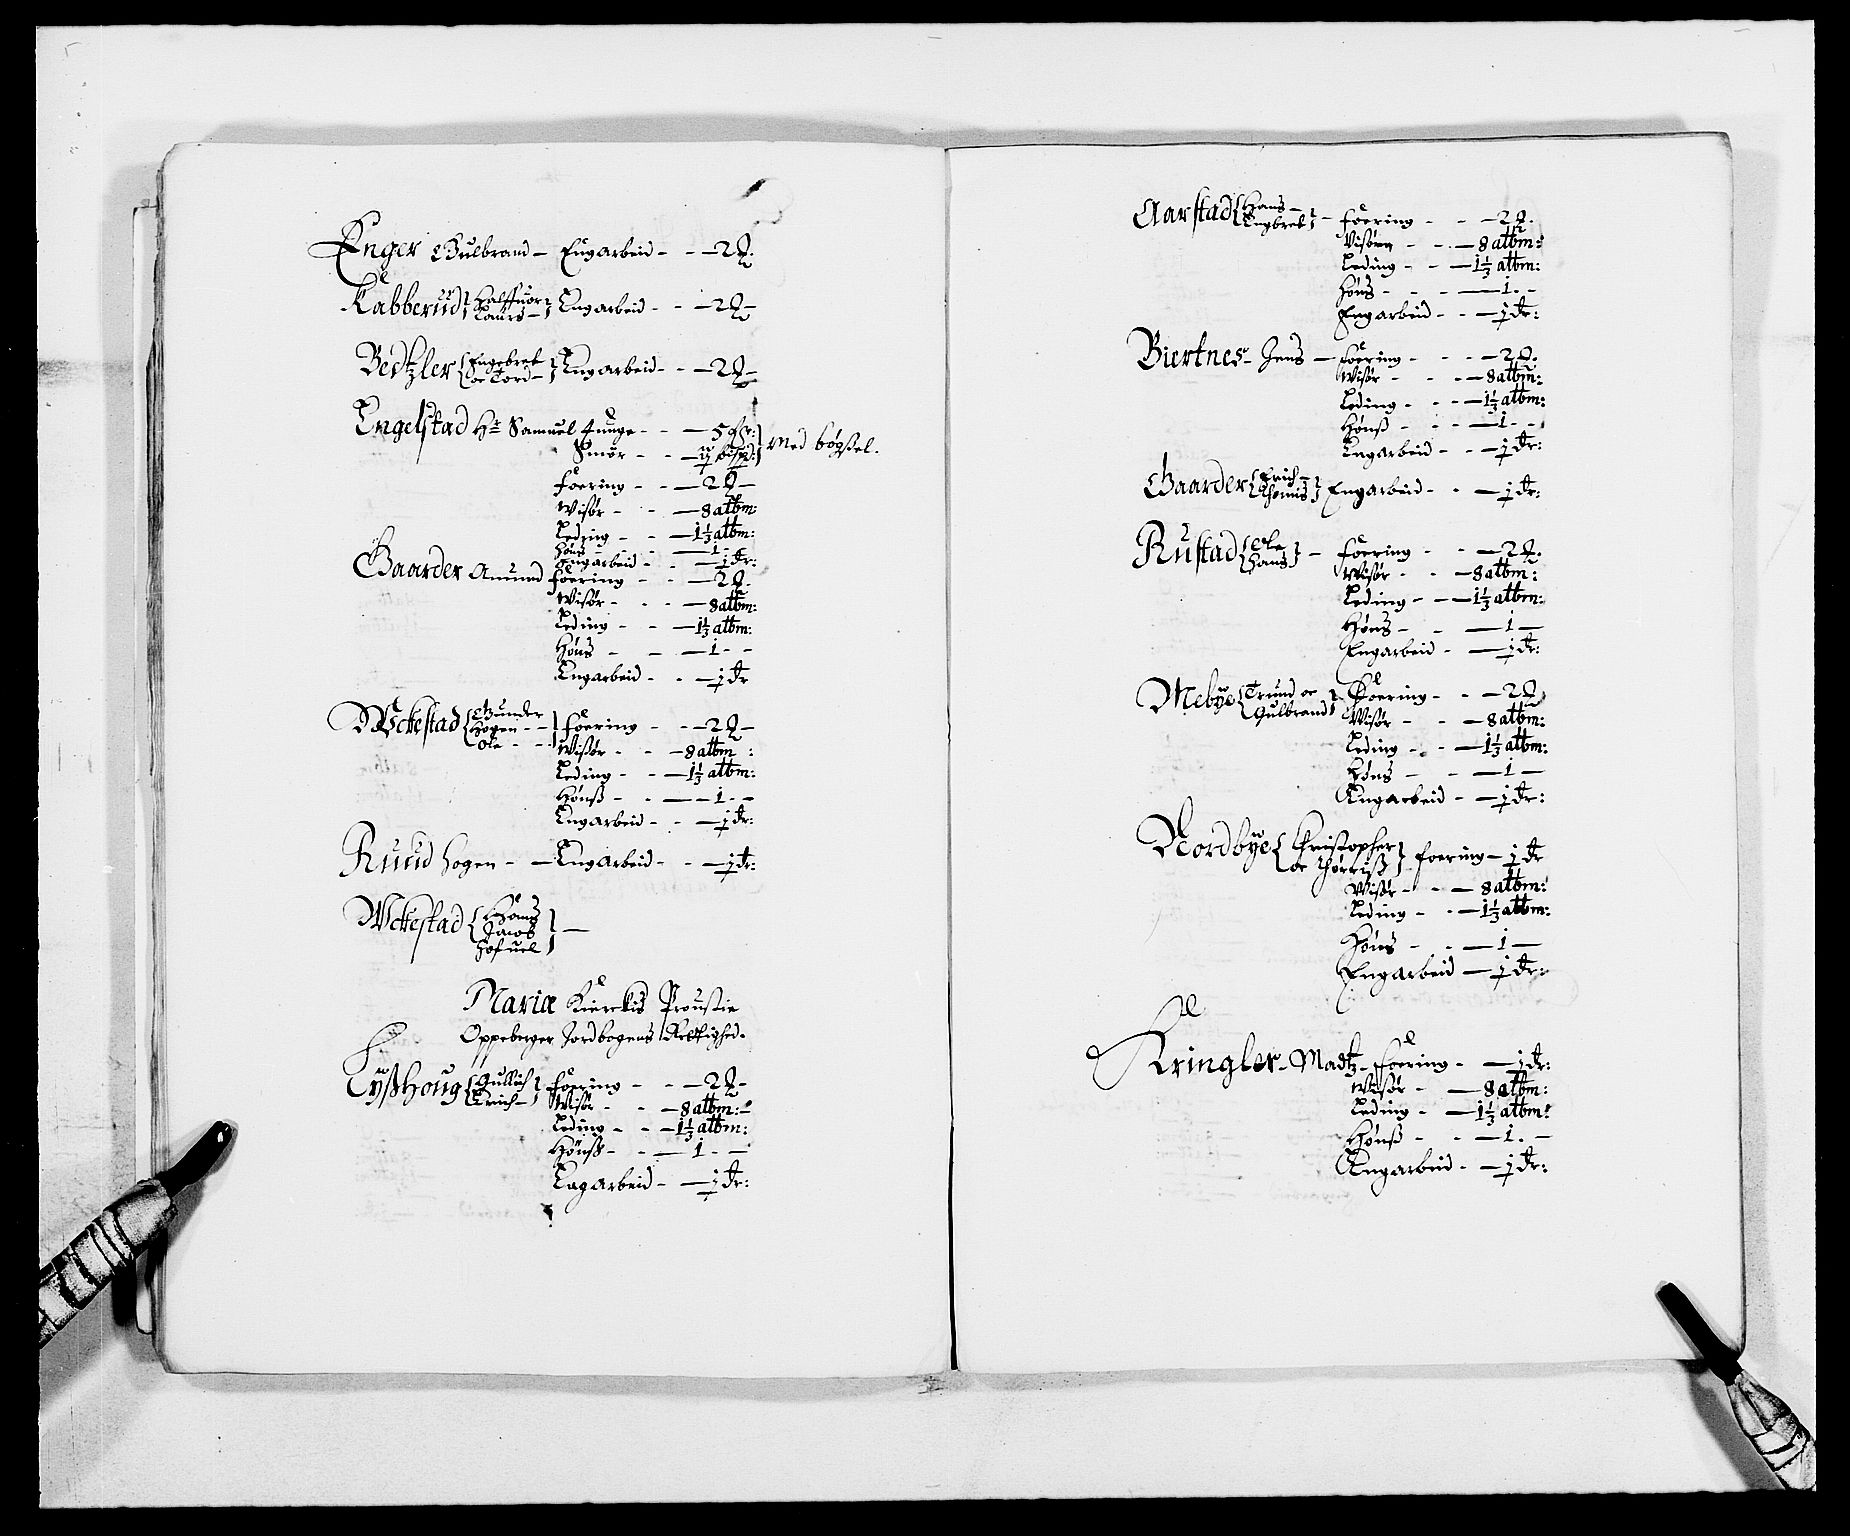 Enger Gulbrand — Engarbeid - - — 2 ȣ.
Kabberud { Halffuor Laurs — } Engarbeid - - — 2 ȣ —
Bedtzler { Engebret oc Tord — } Engarbeid - - — 2 ȣ —
Engelstad Hr Samuel Junge - - — 5 fr:
Smør - - — ½ bispd: } med bøgsel.
foering - - — 2 ȣ —
Wisør - - — 8 albm:
Leding - - — 1⅓ albm:
Høns - - — 1 - -
Engarbeid - - — ½ dr:
Gaarder Amund foering - - — 2 ȣ.
Wisør - - — 8 albm:
Leding - - — 1⅓ albm:
Høns - - — 1 - -
Engarbeid - - — ½ dr
Wckestad { Gunder Hogen - - Ole - - } Foering - - — 2 ȣ —
Wisør - - — 8 albm :
Leding - - — 1⅓ albm:
Hønß - - — 1 - -
Engarbeid - - — ½ dr:
Ruud Hogen - — Engarbeid - - — ½ dr:
Wckestad { Hans Jacob } —
Mariæ Kierckis Proustie
Oppeberger Jordbogens Rettighed.
Tyßhoug { Gullich Erich — } foering - - — 2 ȣ —
Wisør - - — 8 albm: —
Leding - - — 1⅓ albm:
Hønß - - — 1 - —
Engarbeid - — ½ dr:
Aarstad { Hans — Engbret } — foering - - — 2 ȣ.
Wisøre - - — 8 albm:
Leding - - — 1⅓ albm:
Høns - - - — 1 - -
Engarbeid - - — ½ dr:
Biertnes - Jens — foering - - - — 2 ȣ.
Wisør - - - — 8 albm:
Leding - - — 1⅓ albm:
Hønß - - - — 1 - -
Engarbeid - - — ½ dr:
Gaarder { Erich — } Engarbeid - - — ½ dr:
Rustad { Ole Hans } — foering - - — 2 ȣ.
Wisør - - — 8 albm:
Leding - - — 1⅓ albm:
Høns - - — 1 —
Engarbeid - — ½ dr:
Mebye { Trund oc Gulbrand } Foering - - — 2 ȣ
Wisør - - — 8 albm:
Leding - - — 1⅓ albm:
Høns - - — 1 —
Engarbeid - — ½ dr:
Nordbye { Christopher oc } foering — ½ dr
Wisør - - — 8 albm:
Leding - - — 1⅓ albm:
Høns - - — 1 —
Engarbeid — ½ dr:
Kringler - Madtz - Foering - — ½ dr:
Wisør - — 8 albm:
Leding - — 1⅓ albm:
Hønß - - — 1 - —
Engarbeid - — ½ dr: